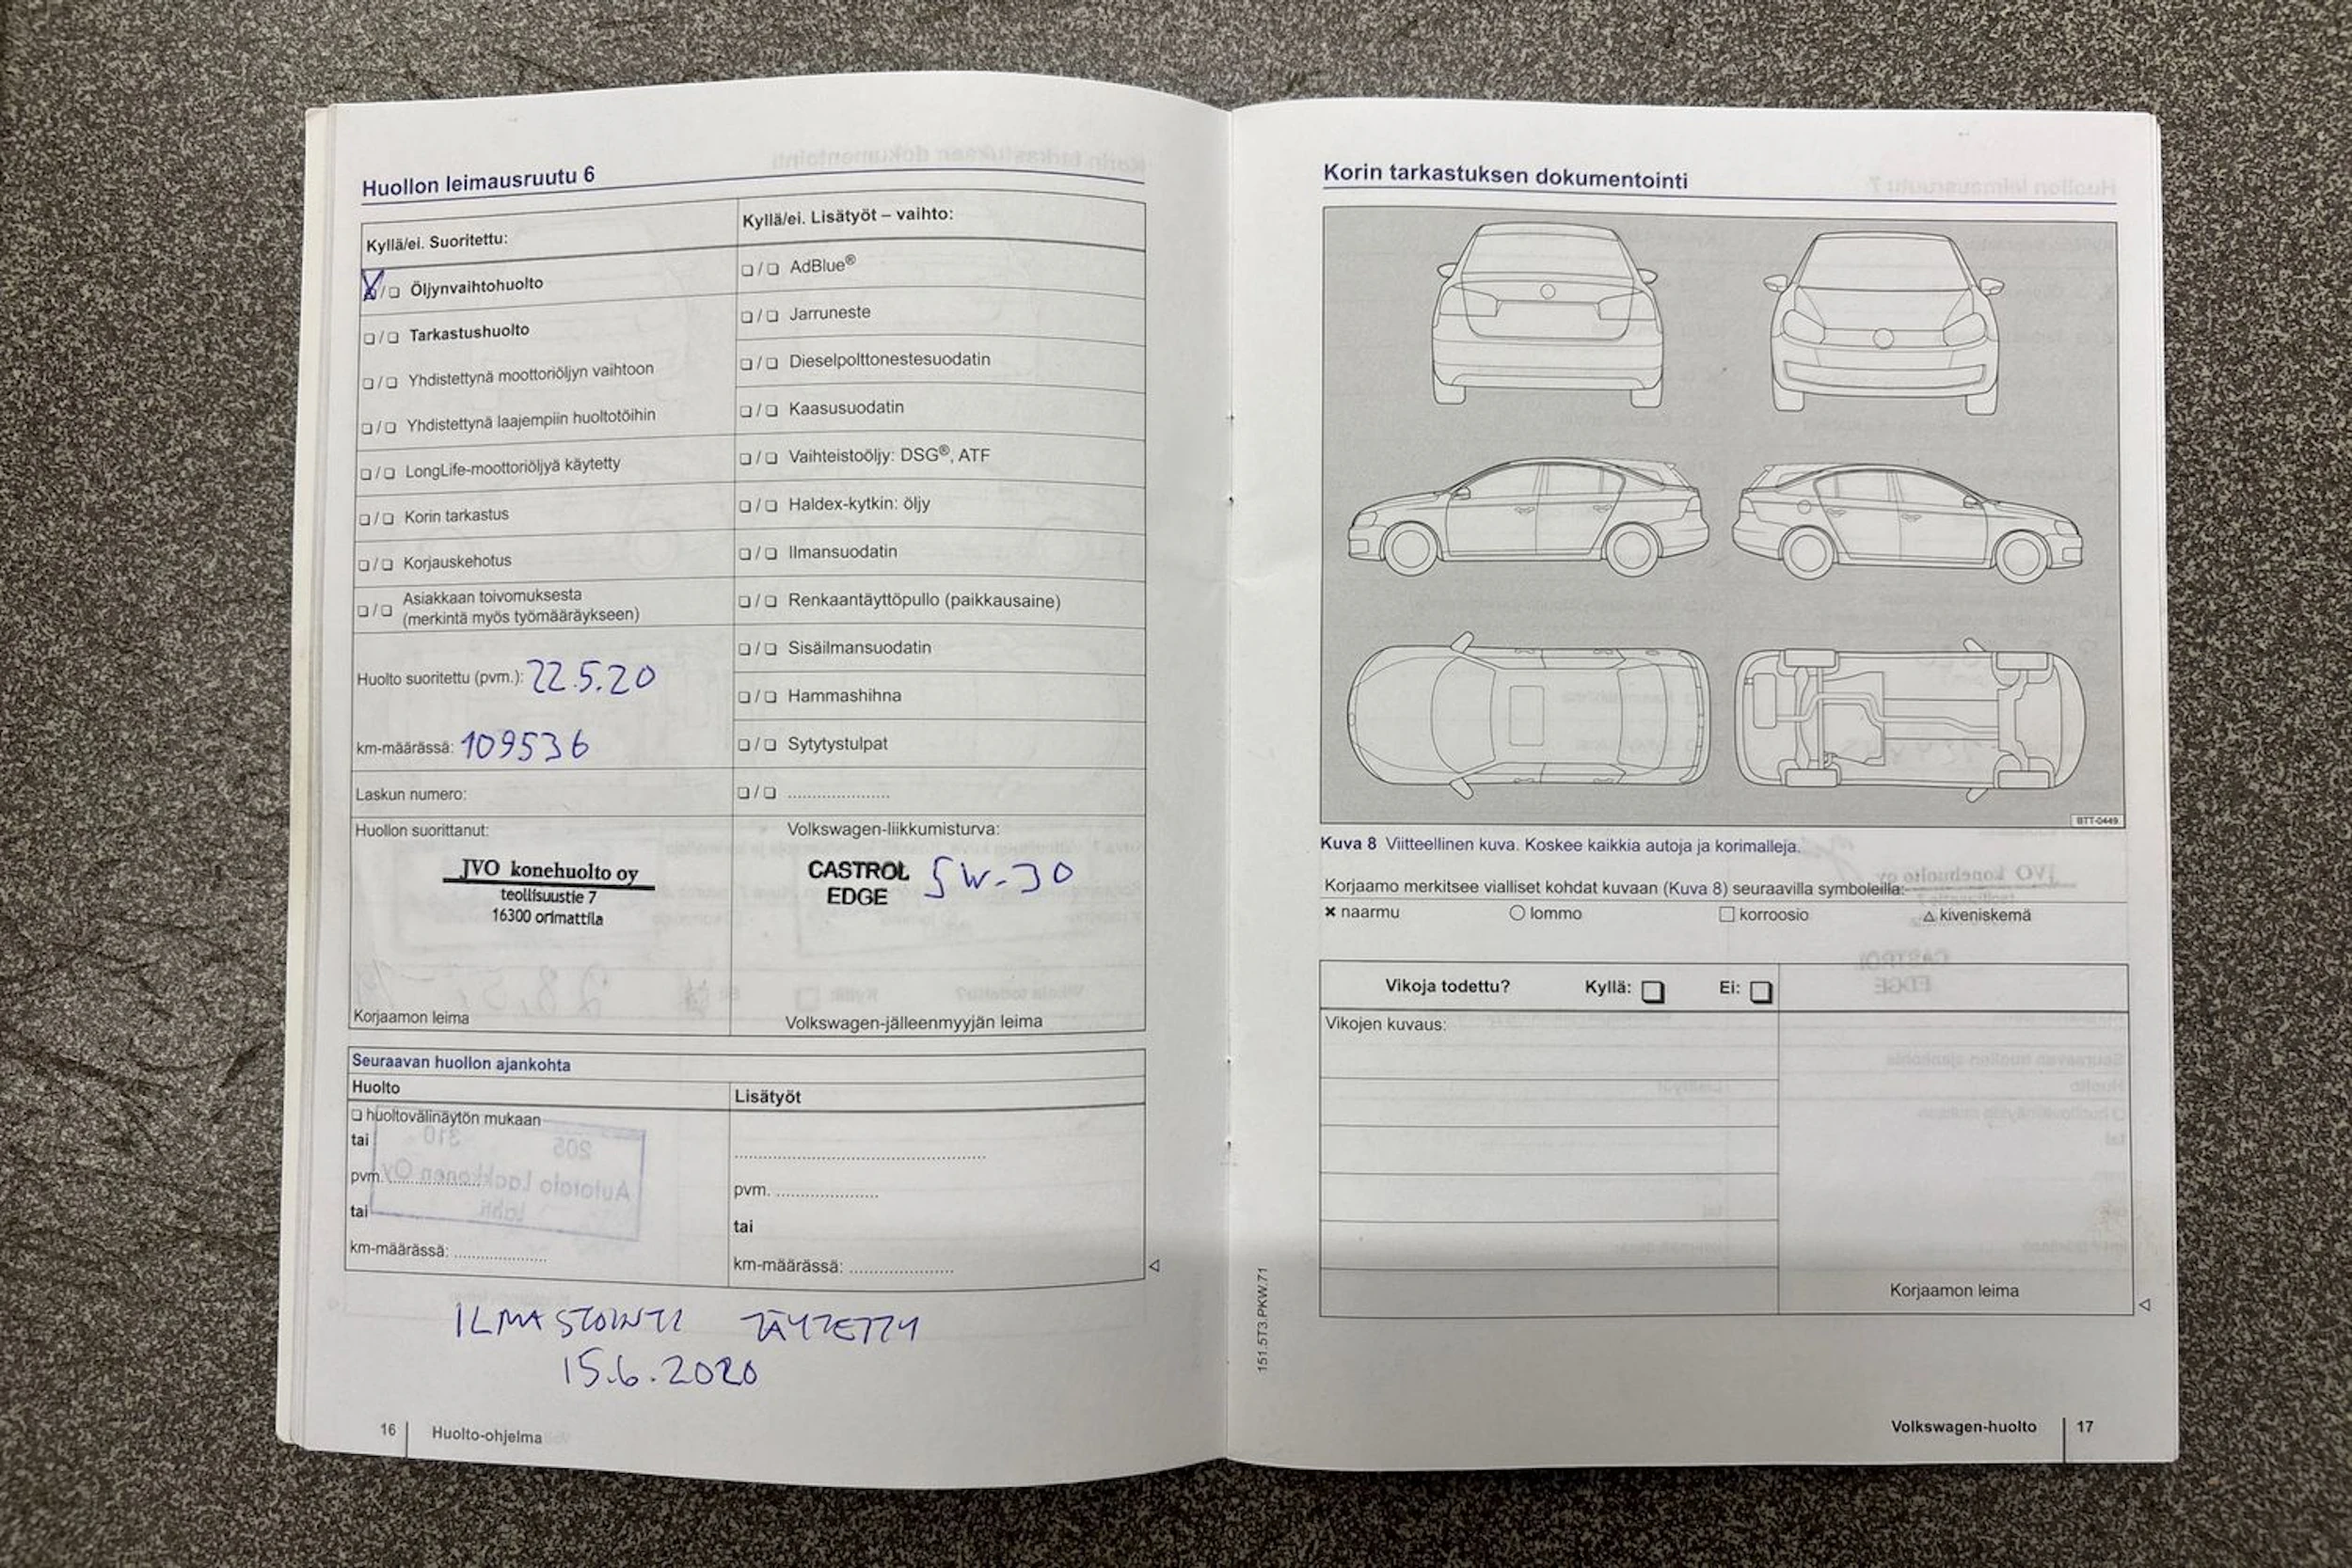 Huollon leimausruutu 6
Kyllä/ei. Suoritettu:
❑/❑ Öljynvaihtohuolto
❑/❑ Tarkastushuolto
❑/❑ Yhdistettynä moottoriöljyn vaihtoon
❑/❑ Yhdistettynä laajempiin huoltotöihin
❑/❑ LongLife-moottoriöljyä käytetty
❑/❑ Korin tarkastus
❑/❑ Korjauskehotus
❑/❑ Asiakkaan toivomuksesta
(merkintä myös työmääräykseen)
Huolto suoritettu (pvm.): 22.5.20
km-määrässä: 109536
Laskun numero:
Huollon suorittanut:
JVO konehuolto oy
teollisuustie 7
16300 orimattila
Korjaamon leima
Kyllä/ei. Lisätyöt – vaihto:
❑/❑ AdBlue®
❑/❑ Jarruneste
❑/❑ Dieselpolttonestesuodatin
❑/❑ Kaasusuodatin
❑/❑ Vaihteistoöljy: DSG®, ATF
❑/❑ Haldex-kytkin: öljy
❑/❑ Ilmansuodatin
❑/❑ Renkaantäyttöpullo (paikkausaine)
❑/❑ Sisäilmansuodatin
❑/❑ Hammashihna
❑/❑ Sytytystulpat
❑/❑ .....................
Volkswagen-liikkumisturva:
CASTROL 5W-30
EDGE
Volkswagen-jälleenmyyjän leima
Seuraavan huollon ajankohta
Huolto
❑ huoltovälinäytön mukaan
tai
pvm. ....................
tai
km-määrässä: ...................
Lisätyöt
..................................................
pvm. .....................
tai
km-määrässä: .....................
ILMASTOINTI TÄYTETTY
15.6.2020
16 Huolto-ohjelma
Korin tarkastuksen dokumentointi
BTT-0449
Kuva 8 Viitteellinen kuva. Koskee kaikkia autoja ja korimalleja.
Korjaamo merkitsee vialliset kohdat kuvaan (Kuva 8) seuraavilla symboleilla:
× naarmu ○ lommo □ korroosio △ kiveniskemä
Vikoja todettu? Kyllä: ❑ Ei: ❑
Vikojen kuvaus:
Korjaamon leima
151.5T3.PKW.71
Volkswagen-huolto 17